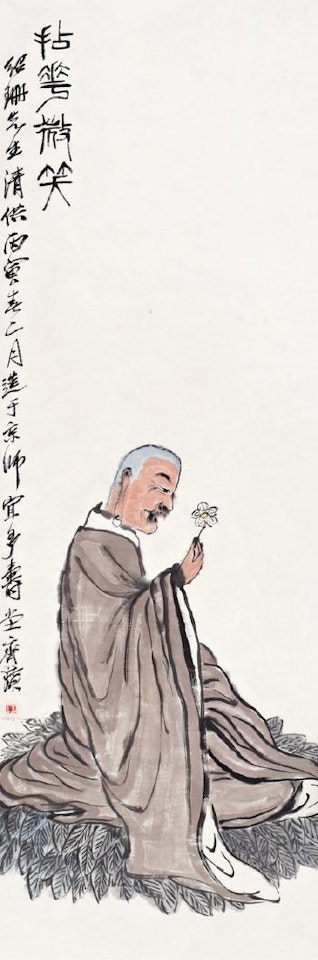 拈花微笑
紹珊先生清供丙寅春二月造于京師宜多壽堂齊璜